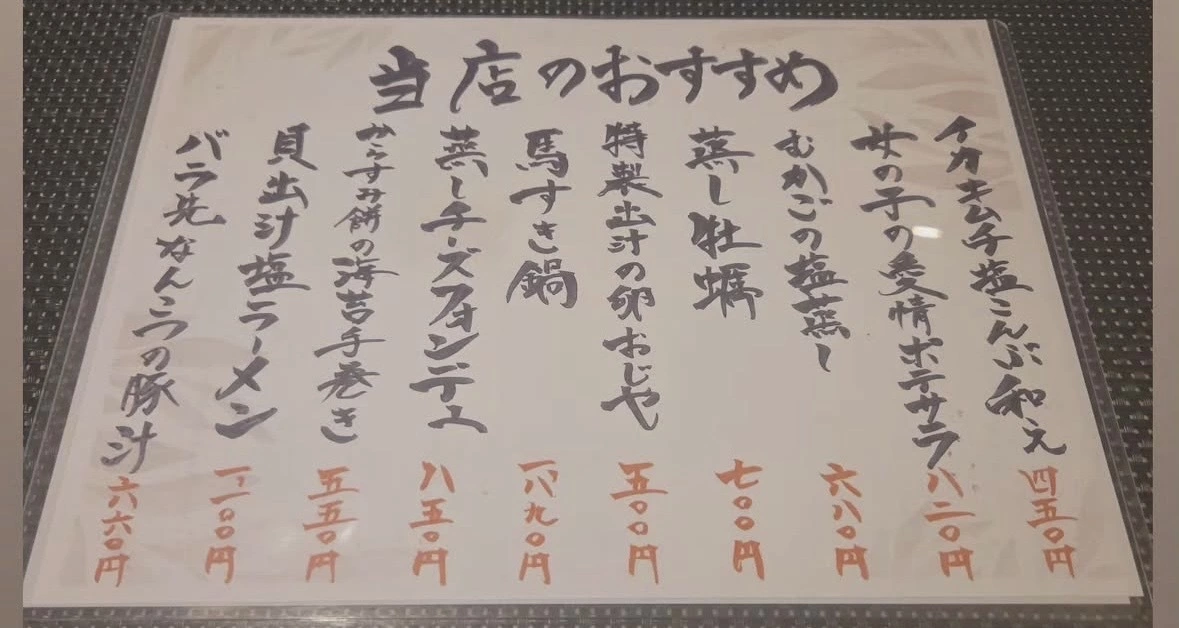 当店のおすすめ
イカキムチ塩こんぶ和え 四五〇円
母の子の愛情ポテサラ 八二〇円
むかごの塩蒸し 六八〇円
蒸し牡蠣 七〇〇円
特製出汁の卵おじや 五〇〇円
馬すき鍋 一、八九〇円
蒸しチーズフォンデュ 八五〇円
からすみ餅の海苔手巻き 五五〇円
貝出汁塩ラーメン 一、二〇〇円
バラ先なんこつの豚汁 六六〇円